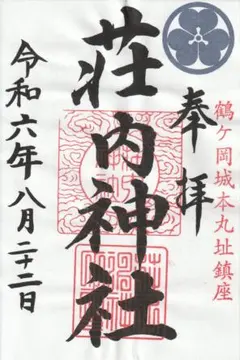 鶴ヶ岡城本丸址鎮座
奉拝
荘内神社
令和六年八月二十二日